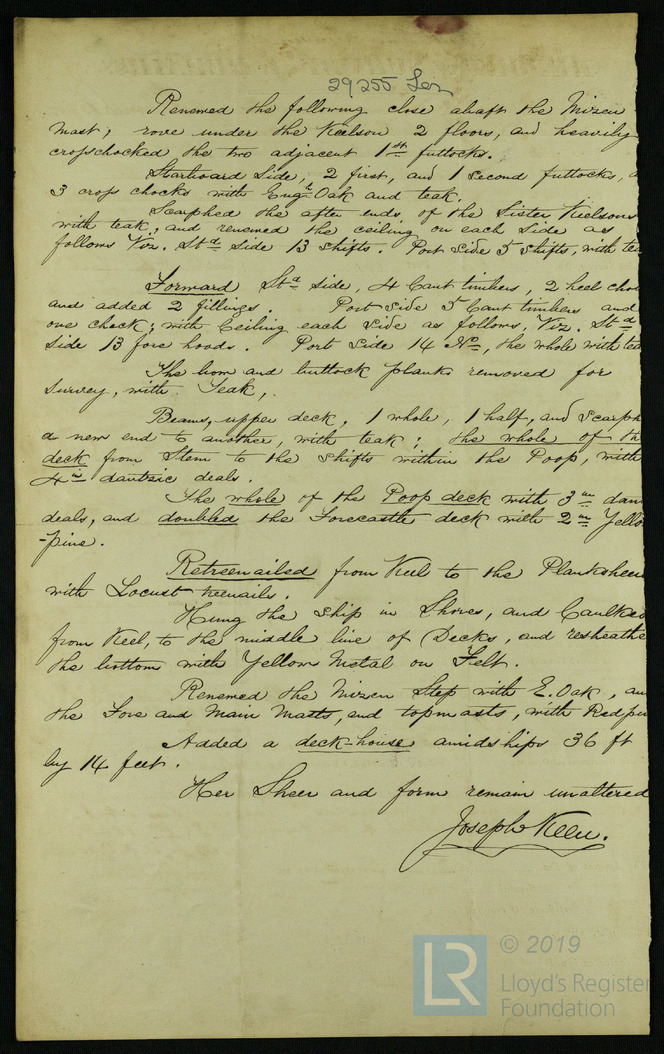 29255 Lon
Renewed the following close abaft the Mizen
mast; rove under the Keelson 2 floors, and heavily
crosschocked the two adjacent 1st futtocks.
Starboard Side, 2 first, and 1 second futtocks,
3 cross chocks with Engh Oak and teak.
Scarphed the after ends, of the Sister Keelsons
with teak; and renewed the ceiling on each Side as
follows Viz. Std Side 13 shifts. Port Side 5 shifts, with tea
Forward Std Side, 4 Cant timbers, 2 heel cho
and added 2 fillings. Port Side 5 Cant timbers and
one chock; with Ceiling each side as follows, Viz. Std
Side 13 fore hoods. Port Side 14 No, the whole with tea
The bow and buttock planks removed for
Survey, with Teak,
Beams, upper deck, 1 whole, 1 half, and Scarph
a new end to another, with teak; the whole of th
deck from Stem to the shifts within the Poop, with
4 in dantzic deals.
The whole of the Poop deck with 3 in dan
deals, and doubled the Forecastle deck with 2 in Yello
-pine.
Retreenailed from Keel to the Planksheer
with Locust treenails.
Hung the Ship in Shores, and Caulked
from Keel, to the middle line of Decks, and resheathe
the bottom with Yellow Metal on Felt.
Renewed the Mizen Step with E. Oak, an
the Fore and Main Masts, and topmasts, with Redpin
Added a deck-house amidships 36 ft
by 14 feet.
Her Sheer and form remain unaltered
Joseph Keen.
LR
© 2019
Lloyd's Register
Foundation